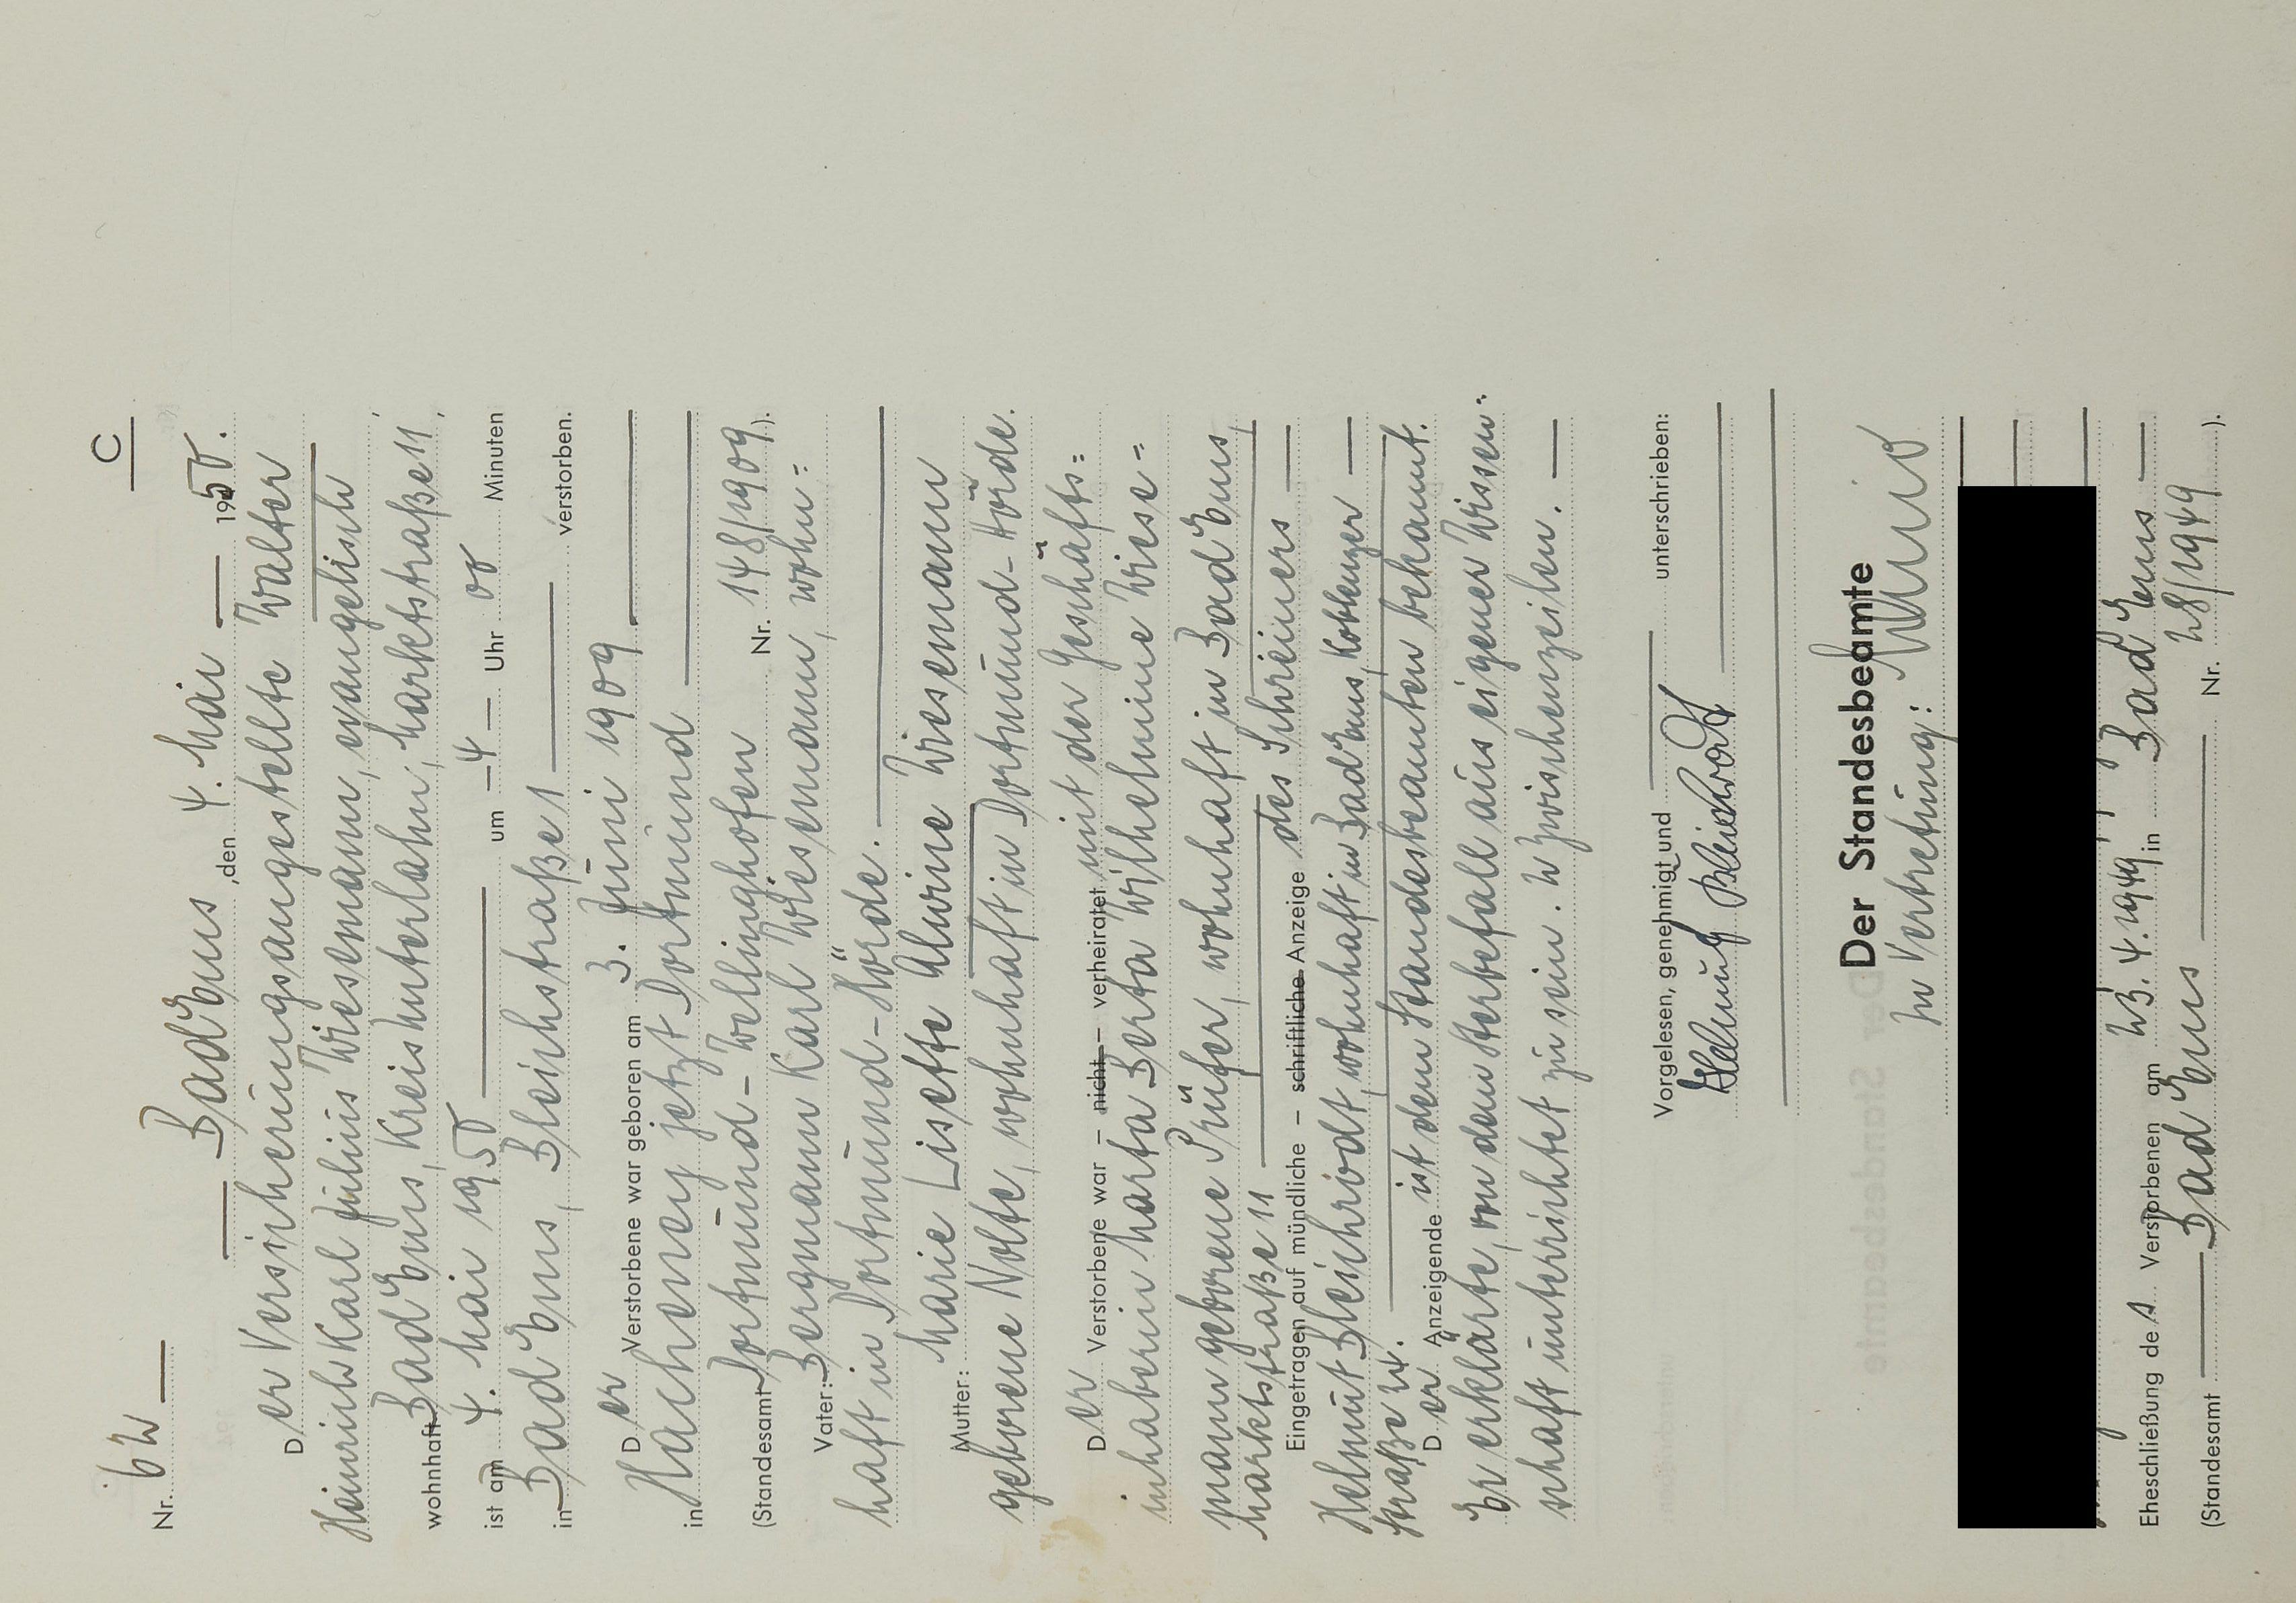 C
Nr. 62
Bad Ems, den 4. Mai 1950.
Der Versicherungsangestellte Walter
Heinrich Karl Julius Wiesemann, evangelisch
wohnhaft Bad Ems, Kreis Unterlahn, Marktstraße 11,
ist am 4. Mai 1950 um 4 Uhr 00 Minuten
in Bad Ems, Bleichstraße 1 verstorben.
Der Verstorbene war geboren am 3. Juni 1909
in Hacheney jetzt Dortmund
(Standesamt Dortmund-Wellinghofen Nr. 148/1909).
Vater: Bergmann Karl Wiesemann, wohn=
haft in Dortmund-Hörde.
Mutter: Marie Lisette Alwine Wiesemann
geborene Nolte, wohnhaft in Dortmund-Hörde.
Der Verstorbene war – nicht – verheiratet mit der Geschäfts=
inhaberin Marta Berta Wilhelmine Wiese=
mann geborene Prüfer, wohnhaft in Bad Ems,
Marktstraße 11
Eingetragen auf mündliche – schriftliche Anzeige des Schreiners
Helmut Bleichrodt, wohnhaft in Bad Ems, Koblenzer
Straße 24.
Der Anzeigende ist dem Standesbeamten bekannt.
Er erklärte, von dem Sterbefall aus eigener Wissen=
schaft unterrichtet zu sein. 2 Zwischenzeilen.
Vorgelesen, genehmigt und unterschrieben:
Helmut Bleichrodt
Der Standesbeamte
In Vertretung:
Eheschließung des Verstorbenen am 23.4.1949 in Bad Ems
(Standesamt Bad Ems Nr. 28/1949).